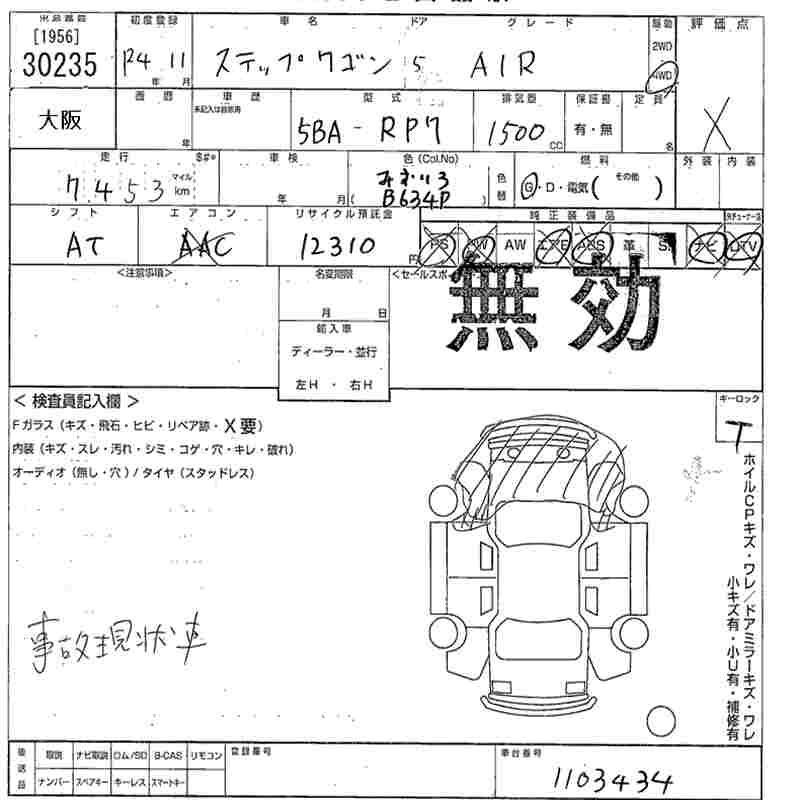 [1956]
30235
初度登録
R4 11
年 月
車名
ステップワゴン
ドア
5
グレード
AIR
駆動
2WD
4WD
評価点
X
大阪
西暦
年
車歴
未記入は自家用
型式
5BA-RP7
排気量
1500
CC
保証書
有・無
定員
名
走行
7.453
マイル
km
S#*
車検
年 月
色(Col,No)
みずいろ
( B634P )
色替
燃料
G・D・電気( その他 )
外装
内装
シフト
AT
エアコン
AAC
リサイクル預託金
12310
円
純正装備品
PS
PW
AW
ABS
革
ナビ
TV
<注意事項>
名変期限
月 日
輸入車
ディーラー・並行
左H・右H
無効
< 検査員記入欄 >
Fガラス(キズ・飛石・ヒビ・リペア跡・X要)
内装(キズ・スレ・汚れ・シミ・コゲ・穴・キレ・破れ)
オーディオ(無し・穴)/タイヤ(スタッドレス)
事故現状車
キーロック
T
ホイルCPキズ・ワレ/ドアミラーキズ・ワレ
小キズ有・小U有・補修有
後送品
取説
ナビ取説
ロム/SD
B-CAS
リモコン
ナンバー
スペアキー
キーレス
スマートキー
登録番号
車台番号
1103434